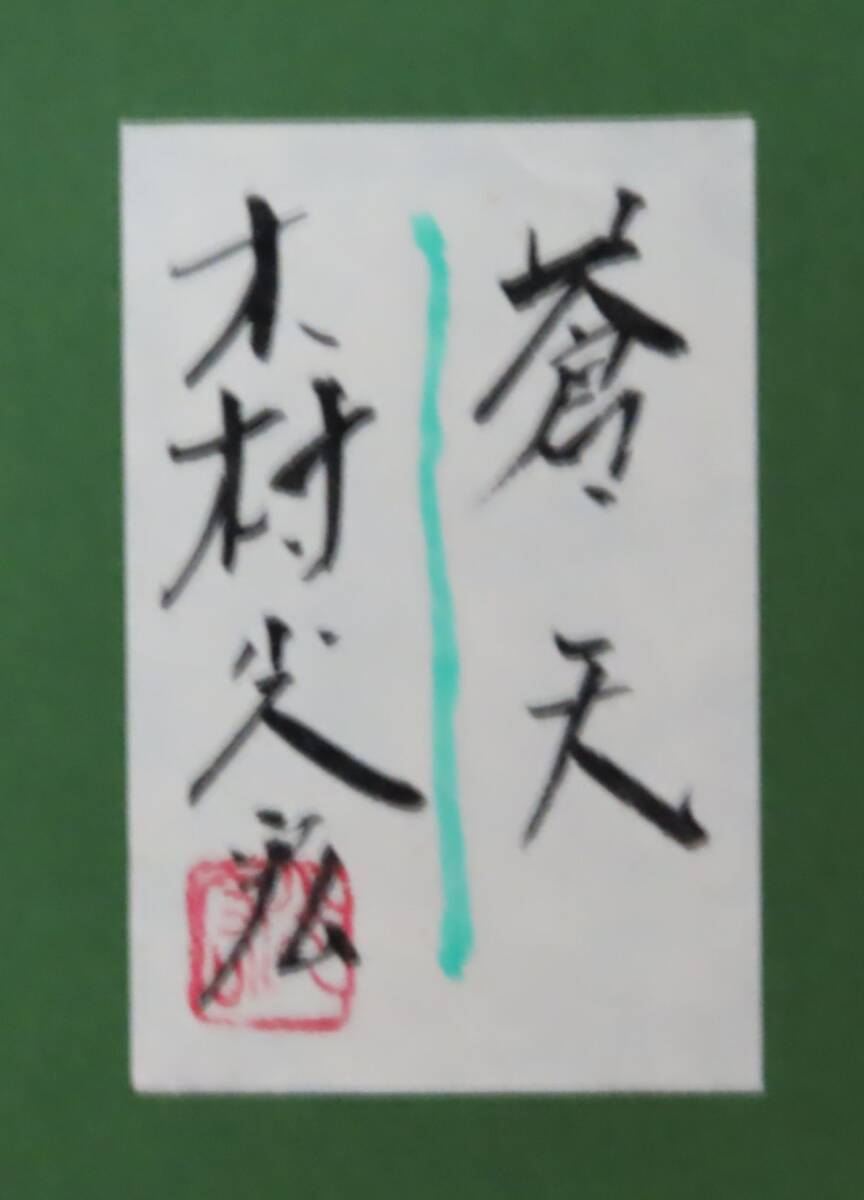 蒼天
木村光弘